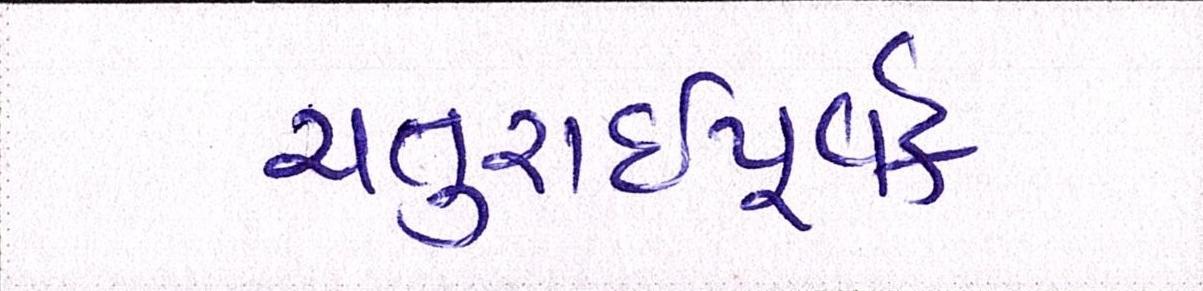 ચતુરાઈપૂર્વક